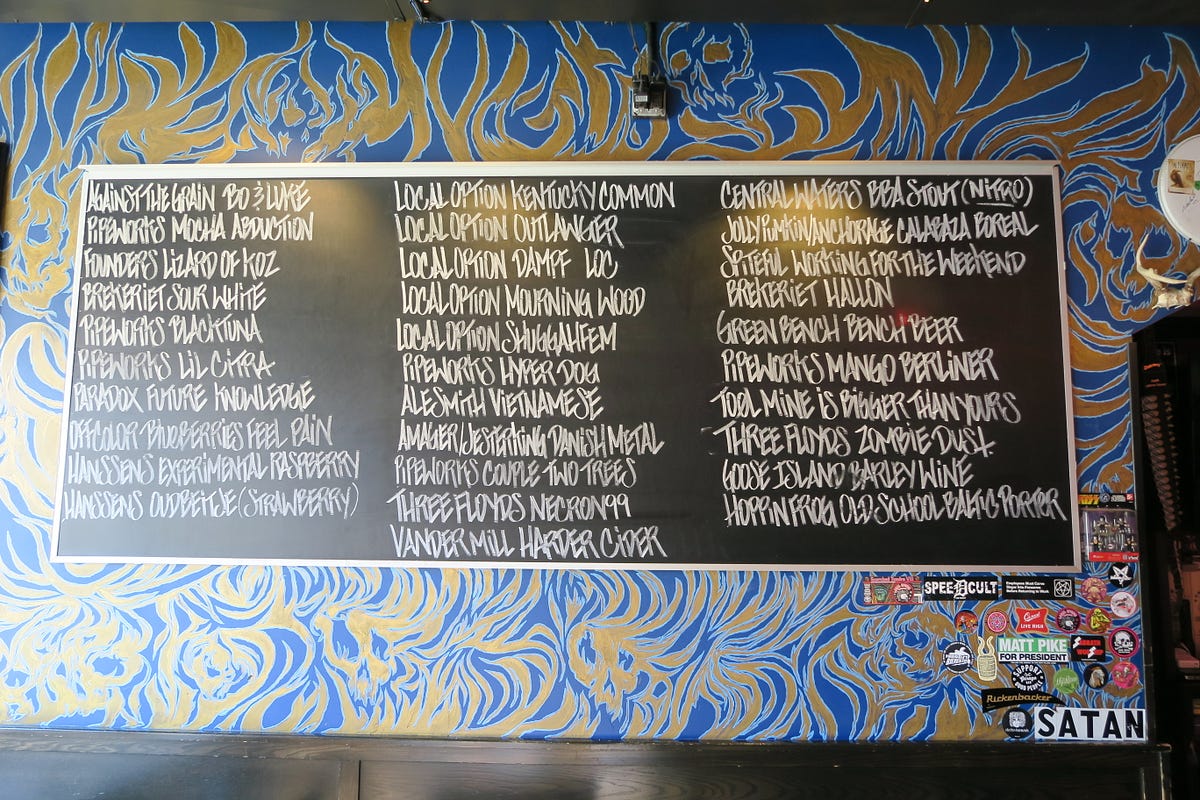 AGAINST THE GRAIN BO & LUKE
PIPEWORKS MOCHA ABDUCTION
FOUNDERS LIZARD OF KOZ
BREKERIET SOUR WHITE
PIPEWORKS BLACKTUNA
PIPEWORKS LIL CITRA
PARADOX FUTURE KNOWLEDGE
OFFCOLOR BLUEBERRIES FEEL PAIN
HANSSENS EXPERIMENTAL RASPBERRY
HANSSENS OUDBEITJE (STRAWBERRY)
LOCAL OPTION KENTUCKY COMMON
LOCAL OPTION OUTLAWGER
LOCAL OPTION DAMPF LOC
LOCAL OPTION MOURNING WOOD
LOCAL OPTION SHUGGAHFEM
PIPEWORKS HYPER DOG
ALESMITH VIETNAMESE
AMAGER/JESTERKING DANISH METAL
PIPEWORKS COUPLE TWO TREES
THREE FLOYDS NECRON99
VANDER MILL HARDER CIDER
CENTRAL WATERS BBA STOUT (NITRO)
JOLLY PUMKIN/ANCHORAGE CALABAZA BOREAL
SPITEFUL WORKING FOR THE WEEKEND
BREKERIET HALLON
GREEN BENCH BENCH BEER
PIPEWORKS MANGO BERLINER
TOOL MINE IS BIGGER THAN YOURS
THREE FLOYDS ZOMBIE DUST
GOOSE ISLAND BARLEY WINE
HOPPIN FROG OLD SCHOOL BALTIC PORTER
SPEEDCULT
Employees Must Carve
Before Returning to Work
LIVE HIGH
MATT PIKE
FOR PRESIDENT
SUPPORT
Rickenbacker
SATAN